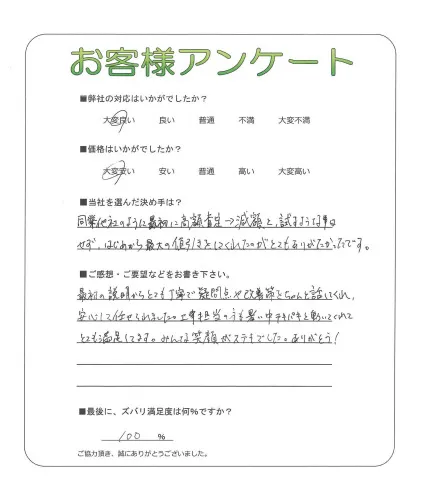 お客様アンケート
■弊社の対応はいかがでしたか？
大変良い 良い 普通 不満 大変不満
■価格はいかがでしたか？
大変安い 安い 普通 高い 大変高い
■当社を選んだ決め手は？
同業他社のように最初に高額査定→減額と、試すような事は
せず、はじめから最大の値引きをしてくれたのがとてもありがたかったです。
■ご感想・ご要望などをお書き下さい。
最初の説明からとても丁寧で疑問点や改善等もちゃんと話してくれ、
安心して任せられました。工事担当の方も暑い中テキパキと動いてくれて
とても満足してます。みんな笑顔がステキでした。ありがとう！
■最後に、ズバリ満足度は何%ですか？
100 %
ご協力頂き、誠にありがとうございました。